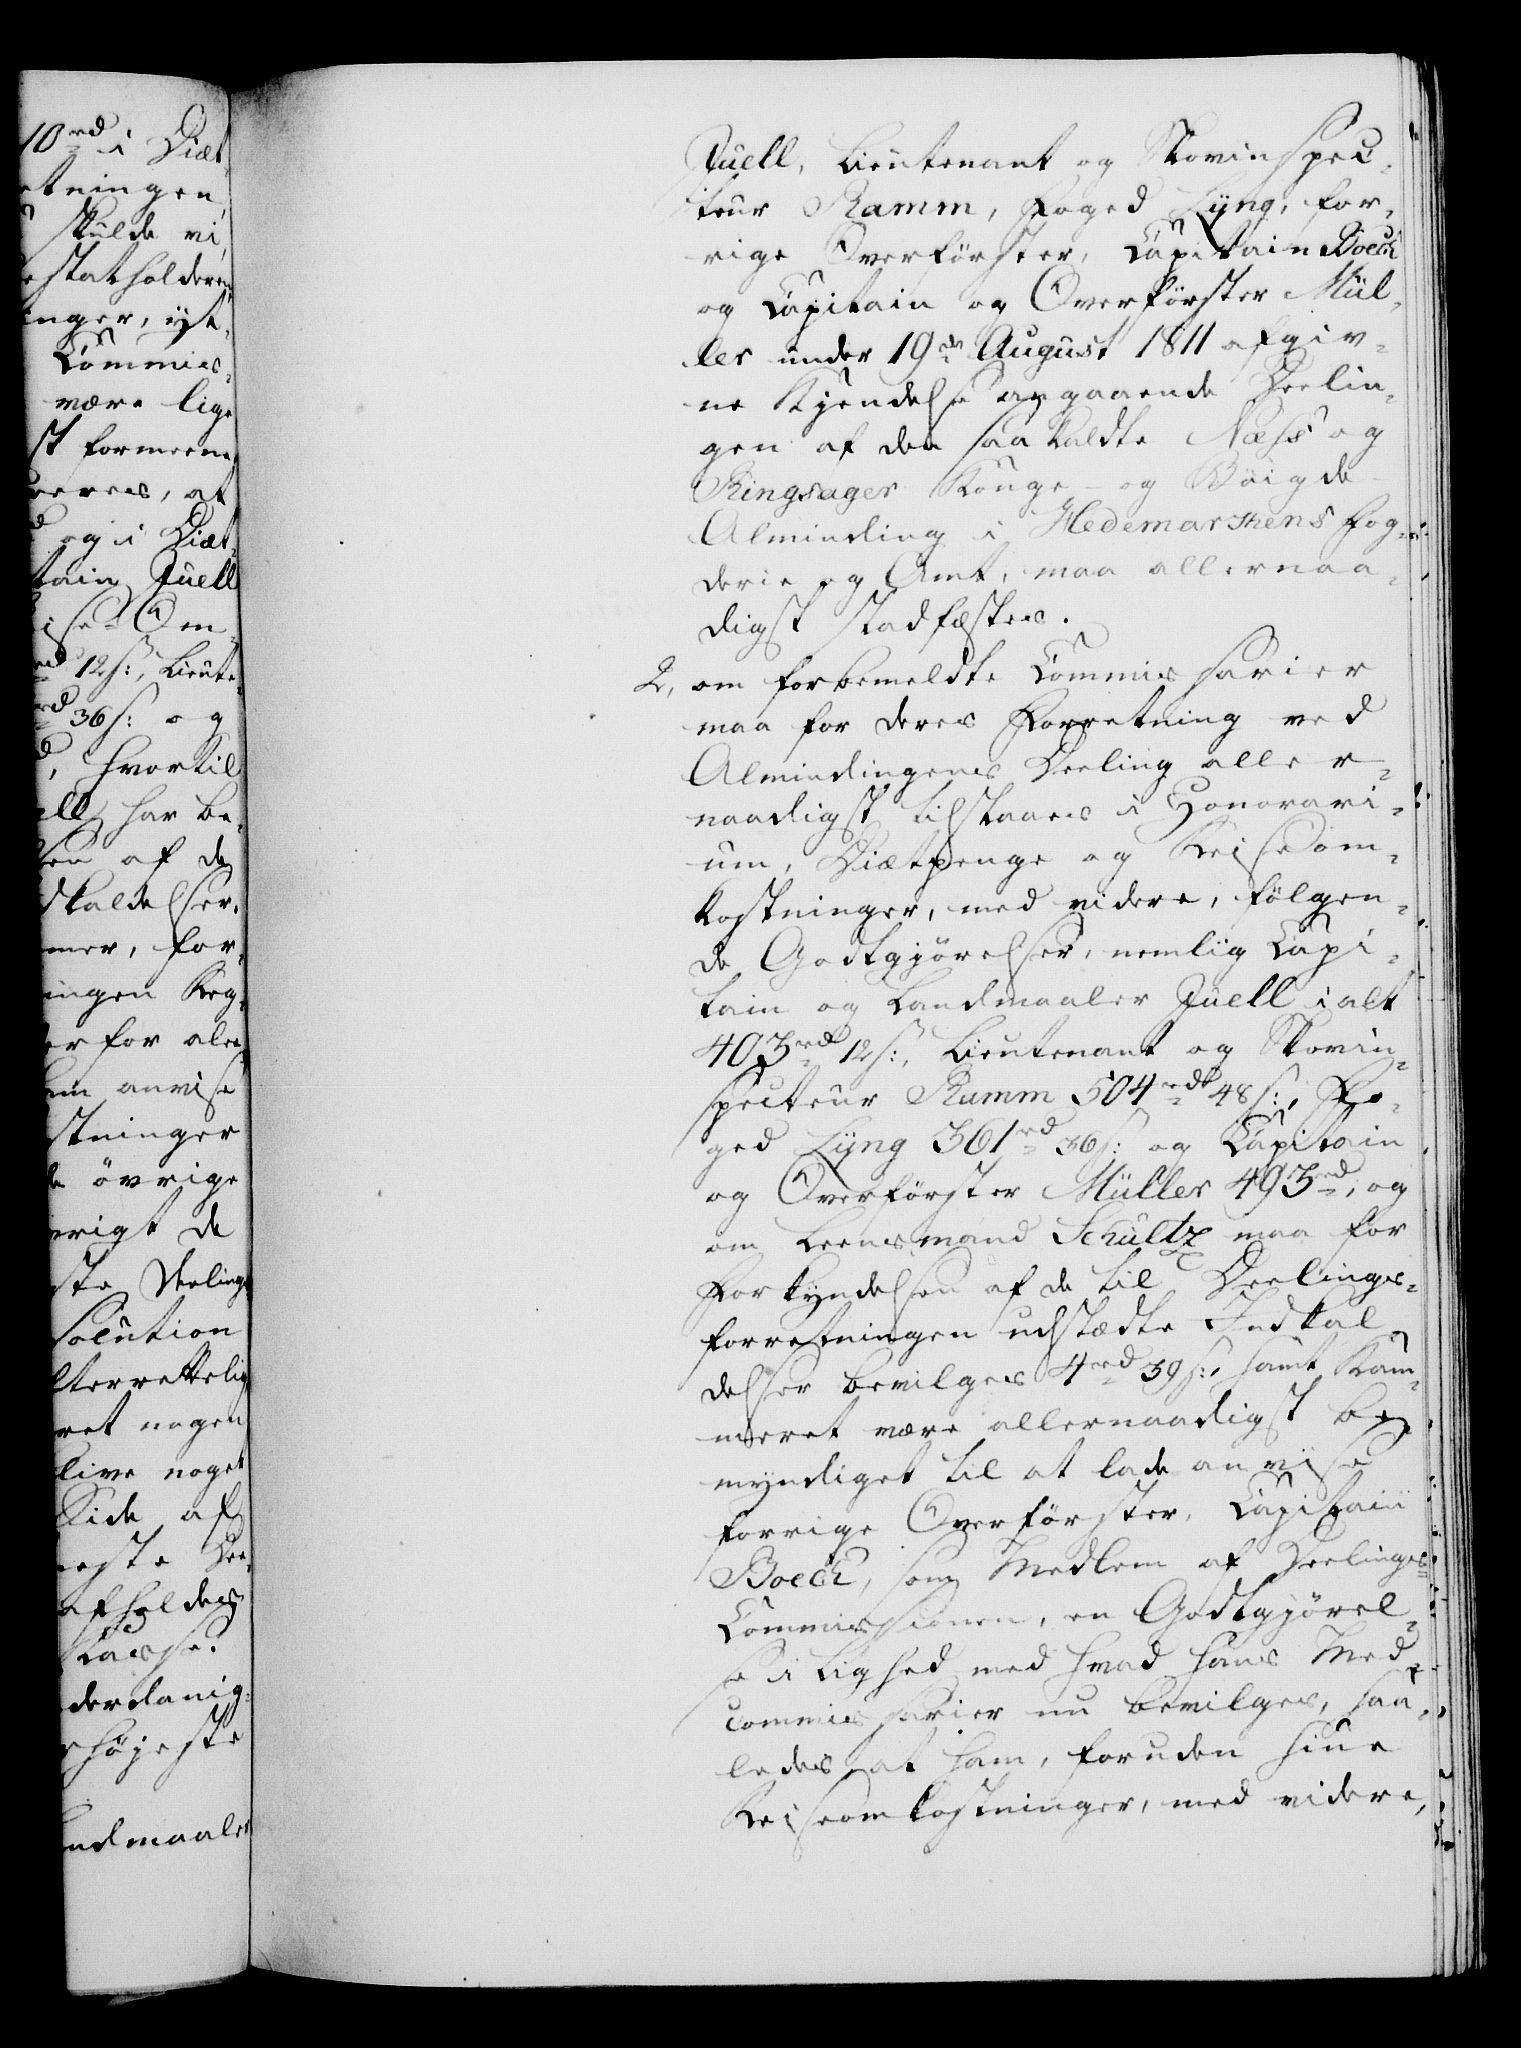 10rd i Diæt
etningen,
skulde vi
estatholderen
inger, yt-
Commis-
være lige
st formeene
reres, at
og i Diæt-
tain Juell
ise Om-
12 s:, Lieute-
rd 36 s: og
hvortil
ell har be-
sen af de
dkaldelser,
mer, for-
ingen Reg-
er for aller-
em anvise
stninger
de øvrige
erigt de
ste Deelings
solution
lterrettelig
ret nogen
live noget
Side af
este Dee-
afholdes
Kasse.
derdanig-
rhøjeste
andmaaler
Juell, Lieutenant og Skovinspec-
teur Ramm, Foged Lÿng, for-
rige Overførster, Capitain Boeck
og Capitain og Overførster Mül-
ler under 19de August 1811 afgiv-
ne Kjendelse angaaende Deelin-
gen af den saa kaldte Næss og
Ringsager Konge- og Bøigde-
Alminding i Hedemarkens Fog-
derie og Amt, maa allernaa-
digst stadfæstes.
2, om forbemeldte Commissarier
maa for deres Forretning ved
Almindingens Deeling aller-
naadigst tilstaaes i Honorari-
um, Diætpenge og Reiseom-
kostninger, med videre, følgen-
de Godtgjørelser, nemlig Capi-
tain og Landmaaler Juell ialt
403rd 12 s:, Lieutenant og Skovin-
specteur Ramm 504rd 48 s:, Fo-
ged Lÿng 361rd 36 s: og Capitain
og Overførster Müller 493rd, og
om Leensmand Schultz maa for
Forkyndelsen af de til Deelings-
forretningen udstædte Indkal-
delser bevilges 4rd 39 s:, samt Kam-
meret være allernaadigst be-
myndiget til at lade anvise
forrige Overførster, Capitain
Boeck, som Medlem af Deelings-
Commissionen, en Godtgjørel-
se i Lighed med hvad hans Med-
commissarier nu bevilges, saa-
ledes at ham, foruden sine
Reiseomkostninger, med videre,